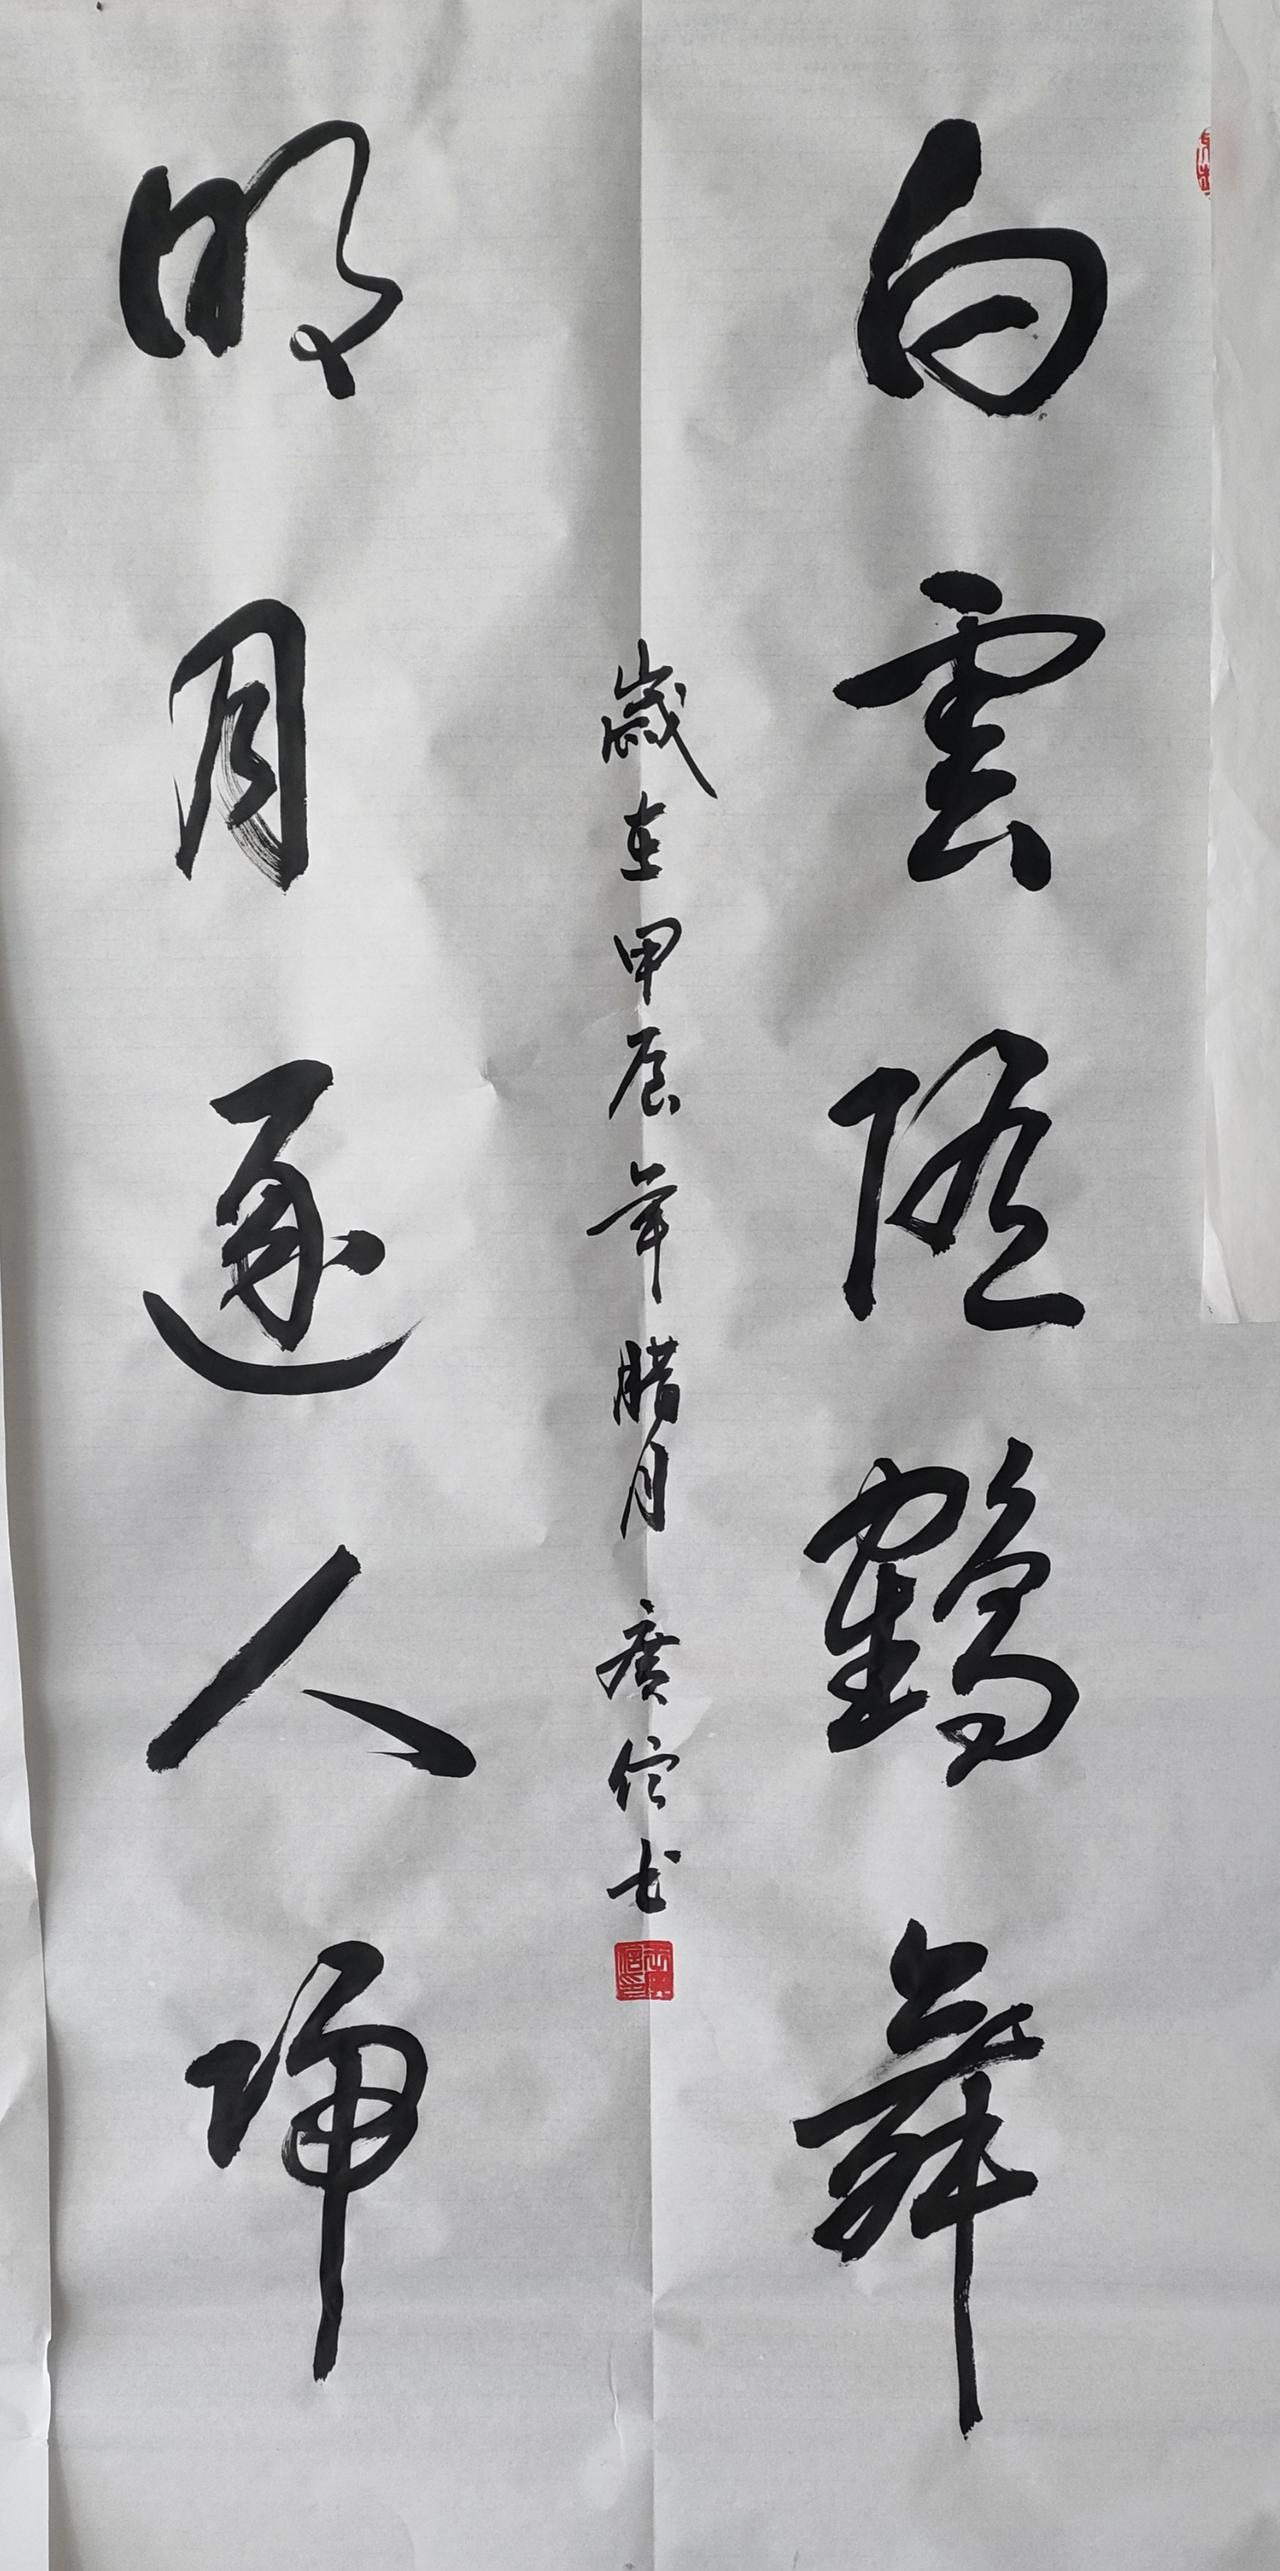 白雲随鶴舞
明月逐人歸
歲在甲辰年腊月 廣信书